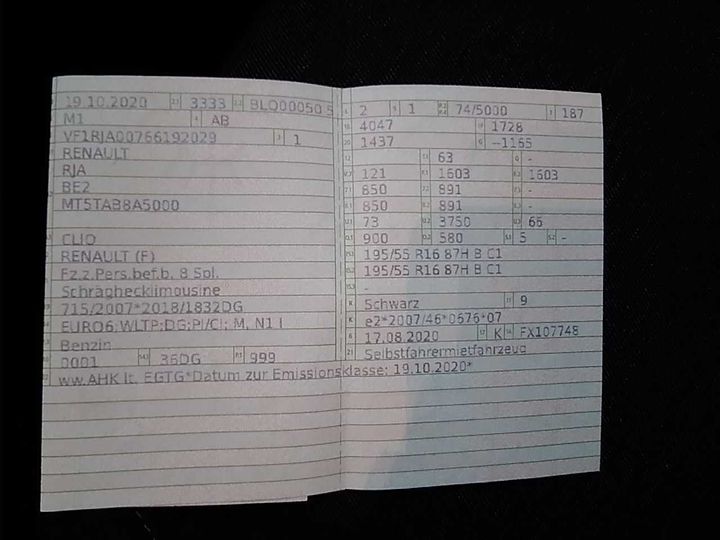 19.10.2020 3333 BLQ00050 5
M1 AB
VF1RJA00766192029 1
RENAULT
RJA
BE2
MT5TAB8A5000
CLIO
RENAULT (F)
Fz.z.Pers.bef.b. 8 Spl.
Schräghecklimousine
715/2007*2018/1832DG
EURO6;WLTP;DG;PI/CI; M, N1 I
Benzin
0001 36DG 999
ww.AHK lt. EGTG*Datum zur Emissionsklasse: 19.10.2020*
2 1 74/5000 187
4047 1728
1437 —1165
63 -
121 1603 1603
850 891 -
850 891 -
73 3750 66
900 580 5 -
195/55 R16 87H B C1
195/55 R16 87H B C1
-
Schwarz 9
e2*2007/46*0676*07
17.08.2020 K FX107748
Selbstfahrermietfahrzeug